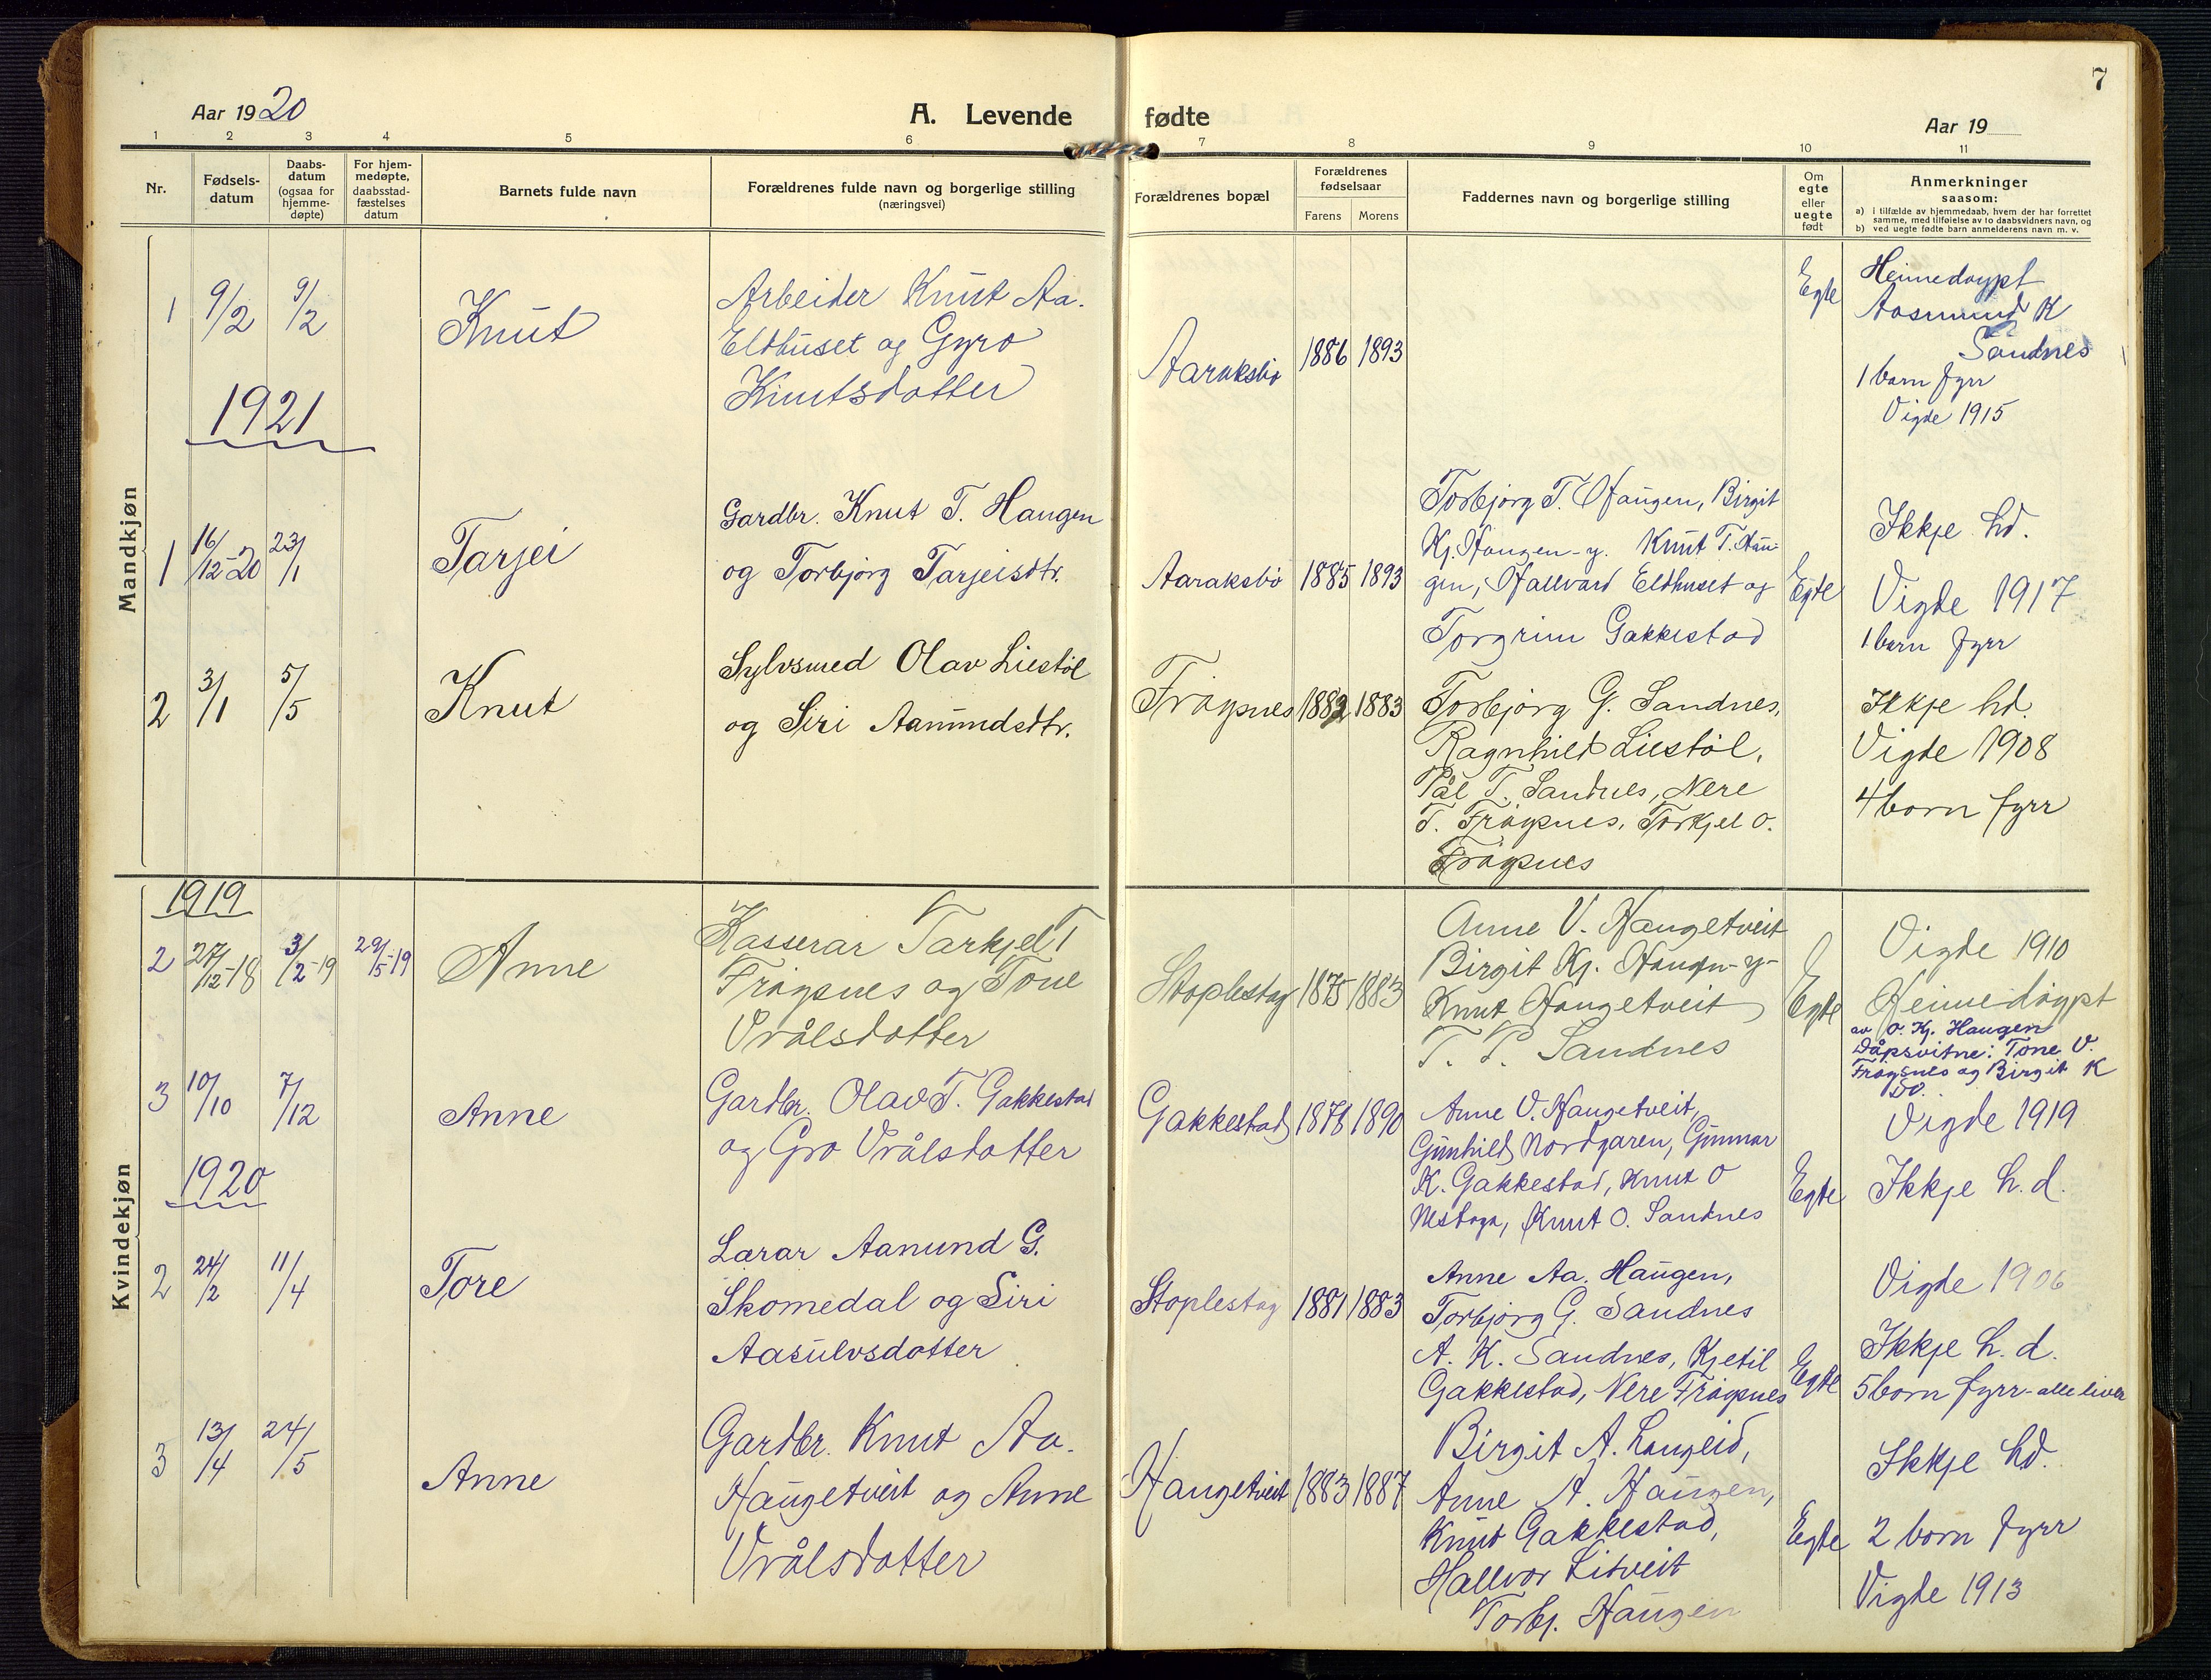 7
Aar 1920
A. Levende fødte
Aar 19
1 2 3 4 5 6 7 8 9 10 11
Nr.
Fødsels-
datum
Daabs-
datum
(ogsaa for
hjemme-
døpte)
For hjem-
medøpte,
daabsstad-
fæstelses
datum
Barnets fulde navn
Forældrenes fulde navn og borgerlige stilling
(næringsvei)
Forældrenes bopæl
Forældrenes
fødselsaar
Farens Morens
Faddernes navn og borgerlige stilling
Om
egte
eller
uegte
født
Anmerkninger
saasom:
a) i tilfælde av hjemmedaab, hvem der har forrettet
samme, med tilføielse av to daabsvidners navn, og
b) ved uegte fødte barn anmelderens navn m. v.
Mandkjøn
1 9/2 9/2
Knut
Arbeider Knut Aa.
Eldhuset og Gyro
Knutsdotter
Aaraksbø
1886 1893
Egte
Heimedøypt
Aasmund K
Sandnes
1 born fyrr
Vigde 1915
1921
1 16/12-20 23/1
Tarjei
Gardbr. Knut T. Haugen
og Torbjørg Tarjeisdtr.
Aaraksbø
1885 1893
Torbjørg T. Haugen, Birgit
Kj. Haugen-y. Knut T. Hau-
gen, Hallvard Eldhuset og
Torgrim Gakkestad
Egte
Ikkje hd.
Vigde 1917
1 born fyrr
2 3/1 5/5
Knut
Sylvsmed Olav Liestøl
og Siri Aanundsdtr.
Frøysnes
1882 1883
Torbjørg G. Sandnes,
Ragnhild Liestøl,
Pål T. Sandnes, Nere
T. Frøysnes, Torkjel O.
Frøysnes
Ikkje hd.
Vigde 1908
4 born fyrr
Kvindekjøn
1919
2 27/12-18 3/2-19 29/5-19
Anne
Kasserar Tarkjel T
Frøysnes og Tone
Vrålsdotter
Stoplestog
1875 1883
Anne V. Haugetveit
Birgit Kj. Haugen-y-
Knut Haugetveit
T. P. Sandnes
Egte
Vigde 1910
Heimedøypt
av O. Kj. Haugen
Dåpsvitne: Tone V.
Frøysnes og Birgit K
Do.
3 10/10 7/12
Anne
Gardbr. Olav T. Gakkestad
og Gro Vrålsdotter
Gakkestad
1878 1890
Anne V. Haugetveit,
Gunhild Nordgaren, Gunnar
K. Gakkestad, Knut O
Nestog, Knut O. Sandnes
Egte
Vigde 1919
Ikkje h.d.
1920
2 24/2 11/4
Tore
Lærar Aanund G.
Skomedal og Siri
Aasulvsdotter
Stoplestog
1881 1883
Anne Aa. Haugen,
Torbjørg G. Sandnes
A. K. Sandnes, Kjetil
Gakkestad, Nere Frøysnes
Egte
Vigde 1906
Ikkje h. d.
5 born fyrr - alle liver
3 13/4 24/5
Anne
Gardbr. Knut Aa.
Haugetveit og Anne
Vrålsdotter
Haugetveit
1883 1887
Birgit A. Langeid,
Anne A. Haugen,
Knut Gakkestad,
Hallvor Litveit
Torbj. Haugen
Egte
Ikkje hd.
2 born fyrr
Vigde 1913